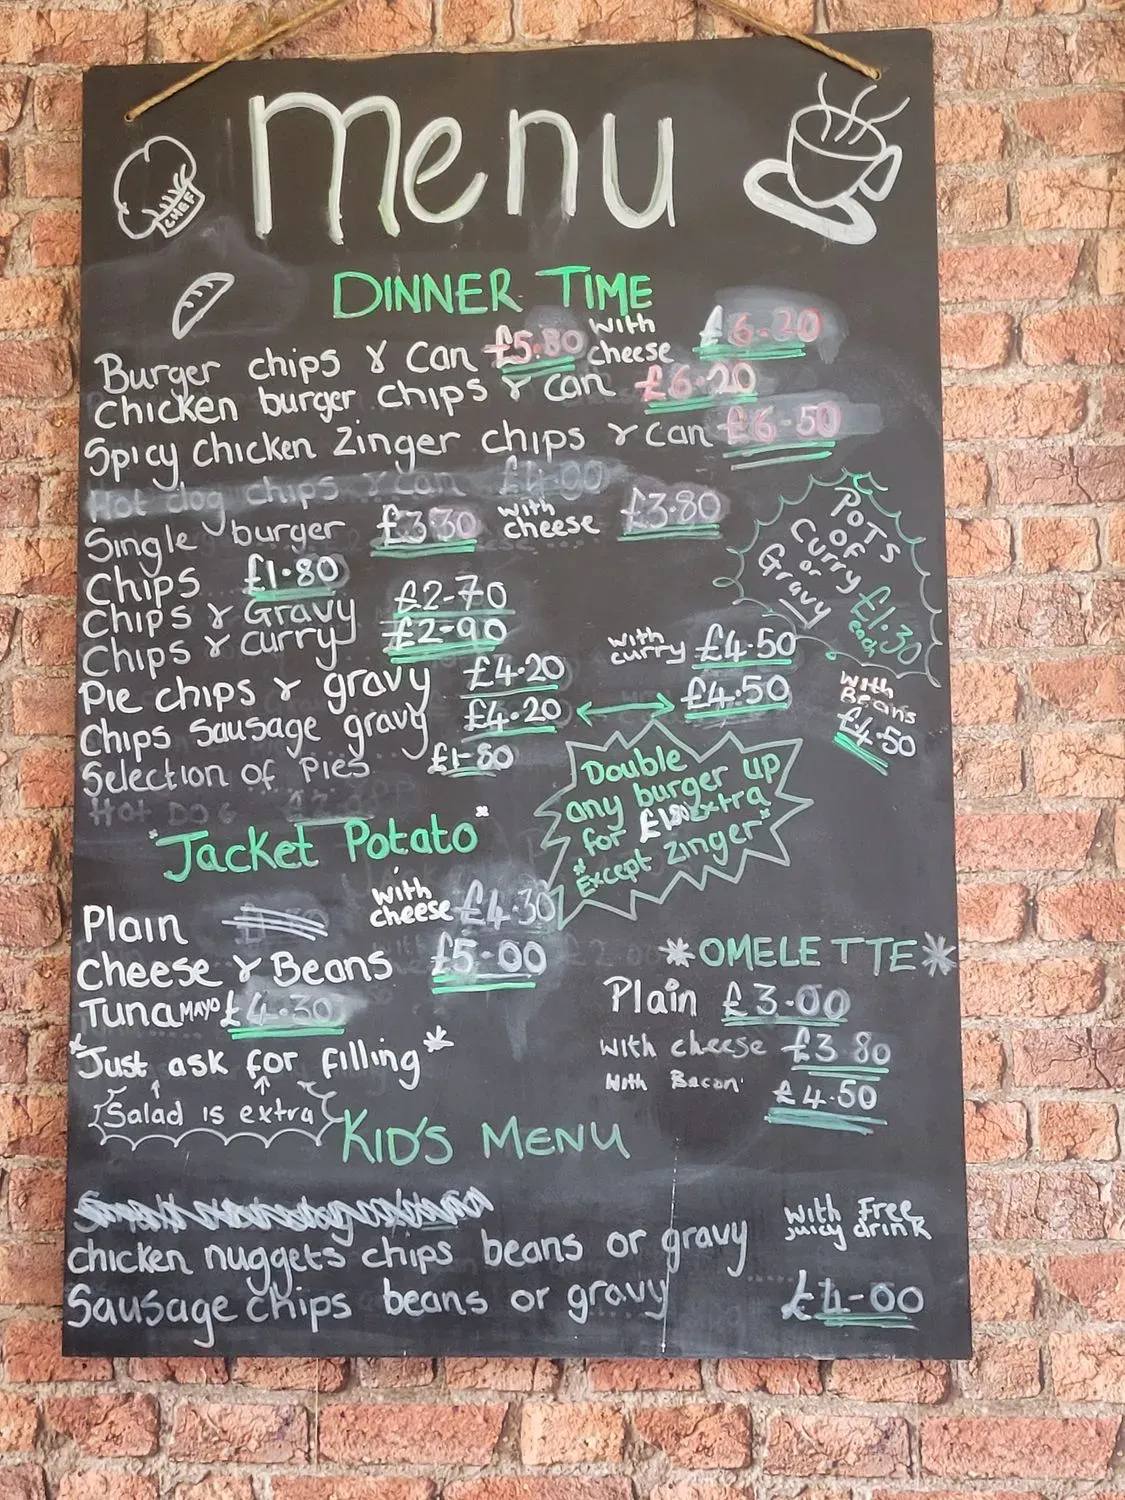 Menu
CHEF
DINNER TIME
Burger chips & Can £5.80 with cheese £6.20
Chicken burger chips & can £6.20
Spicy Chicken Zinger chips & can £6.50
Hot dog chips & can £4.00
Single burger £3.30 with cheese £3.80
Chips £1.80
Chips & Gravy £2-70
Chips & curry £2-90
Pie chips & gravy £4.20 with curry £4.50
Chips Sausage gravy £4.20 £4.50
with Beans £4.50
Selection of Pies £1-80
Hot DOG
POTS
OF
Curry
or
Gravy
£1.30
each
Double
any burger up
for extra
"Except Zinger"
"Jacket Potato"
Plain with cheese £4.30
Cheese & Beans £5-00
Tuna MAYO £4.30
*Just ask for filling*
Salad is extra
*OMELETTE*
Plain £3-00
with cheese £3 80
with Bacon £4-50
KID'S MENU
chicken nuggets chips beans or gravy
Sausage chips beans or gravy
with Free
juicy drink
£4-00